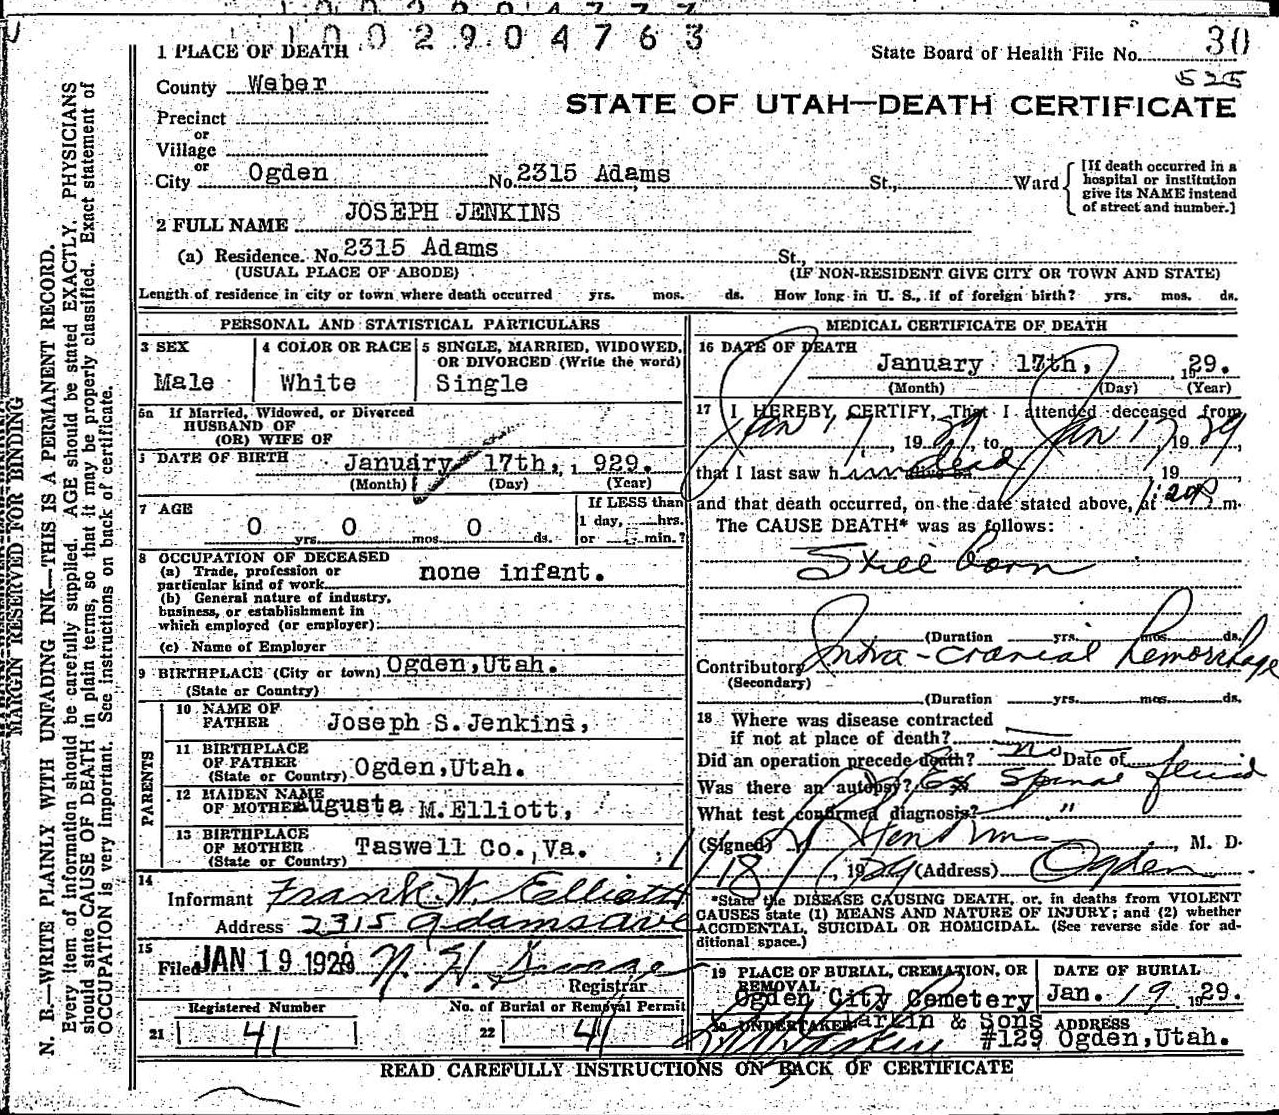 1 0 0 2 9 0 4 7 6 3
1 PLACE OF DEATH
State Board of Health File No. 30
525
County Weber
STATE OF UTAH—DEATH CERTIFICATE
Precinct
or
Village
or
City Ogden No. 2315 Adams St., Ward
[If death occurred in a hospital or institution give its NAME instead of street and number.]
2 FULL NAME JOSEPH JENKINS
(a) Residence. No. 2315 Adams St.,
(USUAL PLACE OF ABODE) (IF NON-RESIDENT GIVE CITY OR TOWN AND STATE)
Length of residence in city or town where death occurred yrs. mos. ds. How long in U. S., if of foreign birth? yrs. mos. ds.
PERSONAL AND STATISTICAL PARTICULARS
3 SEX
Male
4 COLOR OR RACE
White
5 SINGLE, MARRIED, WIDOWED, OR DIVORCED (Write the word)
Single
5a If Married, Widowed, or Divorced
HUSBAND OF
(OR) WIFE OF
DATE OF BIRTH January 17th, 1929.
(Month) (Day) (Year)
7 AGE
0 yrs. 0 mos. 0 ds.
If LESS than
1 day, hrs.
or min.?
8 OCCUPATION OF DECEASED
(a) Trade, profession or
particular kind of work none infant.
(b) General nature of industry,
business, or establishment in
which employed (or employer)
(c) Name of Employer
9 BIRTHPLACE (City or town) Ogden, Utah.
(State or Country)
PARENTS
10 NAME OF
FATHER Joseph S. Jenkins,
11 BIRTHPLACE
OF FATHER
(State or Country) Ogden, Utah.
12 MAIDEN NAME
OF MOTHER Augusta M. Elliott,
13 BIRTHPLACE
OF MOTHER
(State or Country) Taswell Co., Va.
14
Informant Frank W. Elliott
Address 2315 Adams ave
15
Filed JAN 19 1929
Registrar
Registered Number
21 41
No. of Burial or Removal Permit
22 41
MEDICAL CERTIFICATE OF DEATH
16 DATE OF DEATH
January 17th, 1929.
(Month) (Day) (Year)
17 I HEREBY CERTIFY, That I attended deceased from
Jan 17 1929, to Jan 17 1929
that I last saw him dead alive on 19
and that death occurred, on the date stated above, at 1:20 P m.
The CAUSE DEATH* was as follows:
Still Born
(Duration yrs. mos. ds.
Contributory Intra-cranial hemorrhage
(Secondary)
(Duration yrs. mos. ds.
18 Where was disease contracted
if not at place of death?
Did an operation precede death? no Date of
Was there an autopsy? Ex Spinal fluid
What test confirmed diagnosis? "
(Signed) M. D.
1/18, 1929 (Address) Ogden
*State the DISEASE CAUSING DEATH, or, in deaths from VIOLENT
CAUSES state (1) MEANS AND NATURE OF INJURY; and (2) whether
ACCIDENTAL, SUICIDAL OR HOMICIDAL. (See reverse side for ad-
ditional space.)
19 PLACE OF BURIAL, CREMATION, OR
REMOVAL
Ogden City Cemetery
DATE OF BURIAL
Jan. 19 1929.
20 UNDERTAKER Larkin & Sons
#129
ADDRESS
Ogden, Utah.
READ CAREFULLY INSTRUCTIONS ON BACK OF CERTIFICATE
MARGIN RESERVED FOR BINDING
N. B.—WRITE PLAINLY WITH UNFADING INK—THIS IS A PERMANENT RECORD.
Every item of information should be carefully supplied. AGE should be stated EXACTLY. PHYSICIANS
should state CAUSE OF DEATH in plain terms, so that it may be properly classified. Exact statement of
OCCUPATION is very important. See instructions on back of certificate.